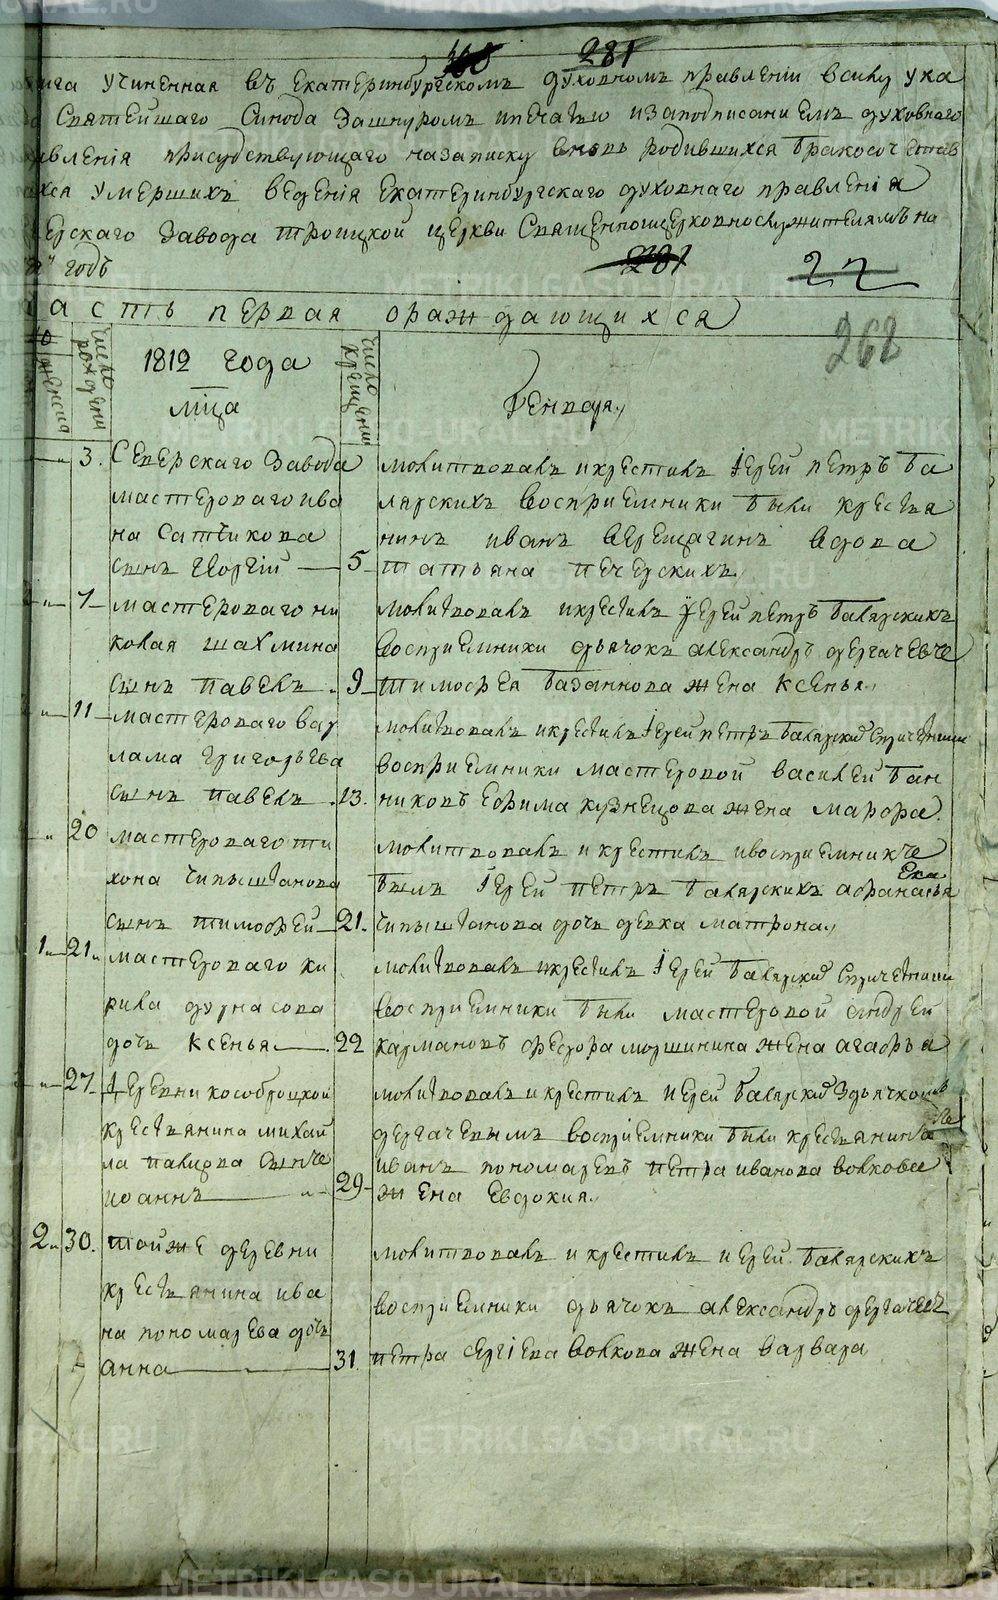 281
ига учиненная въ Екатеринбургскомъ духовномъ правленіи всилу ука
Святейшаго Синода зашнуромъ ипечатью изаподписаниемъ духовнаго
вленія присудствующаго назаписку вновь родившихся бракосочетав
хся умершихъ веденія Екатеринбургскаго духовнаго правленія
ерскаго завода троицкой церкви Священноцерковнослужителямъ на
годъ
22
асть первая ораждающихся
268
число рождени
1812 года
мца
число крещении
Генваря
3. Северскаго завода
мастероваго ива
на Сатикова
сынъ Георгий — 5
молитвовалъ икрестилъ Іерей петръ ба
лярскихъ восприемники были крестья
нинъ иванъ верещагинъ вдова
татьяна печерскихъ
7 мастероваго ни
колая шахмина
сынъ павелъ 9
молитвовалъ икрестилъ Іерей петръ балярскихъ
восприемники дьячокъ александръ дергачевъ
тимофея базаннова жена ксенья
11 мастероваго вар
лама григорьева
сынъ павелъ 13.
молитвовалъ икрестилъ Іерей петръ балярский спричетники
восприемники мастеровой василей бан
никовъ ефима кузнецова жена марфа
20 мастероваго ти
хона чипыштанова
сынъ тимофей 21.
молитвовалъ и крестилъ ивосприемникъ
былъ Іерей петръ балярскихъ афанасья
чипыштанова дочь девка матрона
1 21 мастероваго ки
рила фурнасова
дочь ксенья 22
молитвовалъ икрестилъ Іерей балярский спричетники
восприемники были мастеровой андрей
кармановъ федора моршинина жена агафья
27 деревни кособроцкой
крестьянина михай
ла палцова сынъ
иоаннъ 29
молитвовалъ икрестилъ Иерей балярский здьячкомъ
дергачевымъ восприемники были крестьянинъ
иванъ пономаревъ петра иванова волкова
жена евдокия
2 30. тойже деревни
крестьянина ива
на пономарева дочь
анна 31.
молитвовалъ и крестилъ иерей балярскихъ
восприемники дьячокъ александръ дергачевъ
петра сергіева волкова жена варвара
METRIKI.GASO-URAL.RU